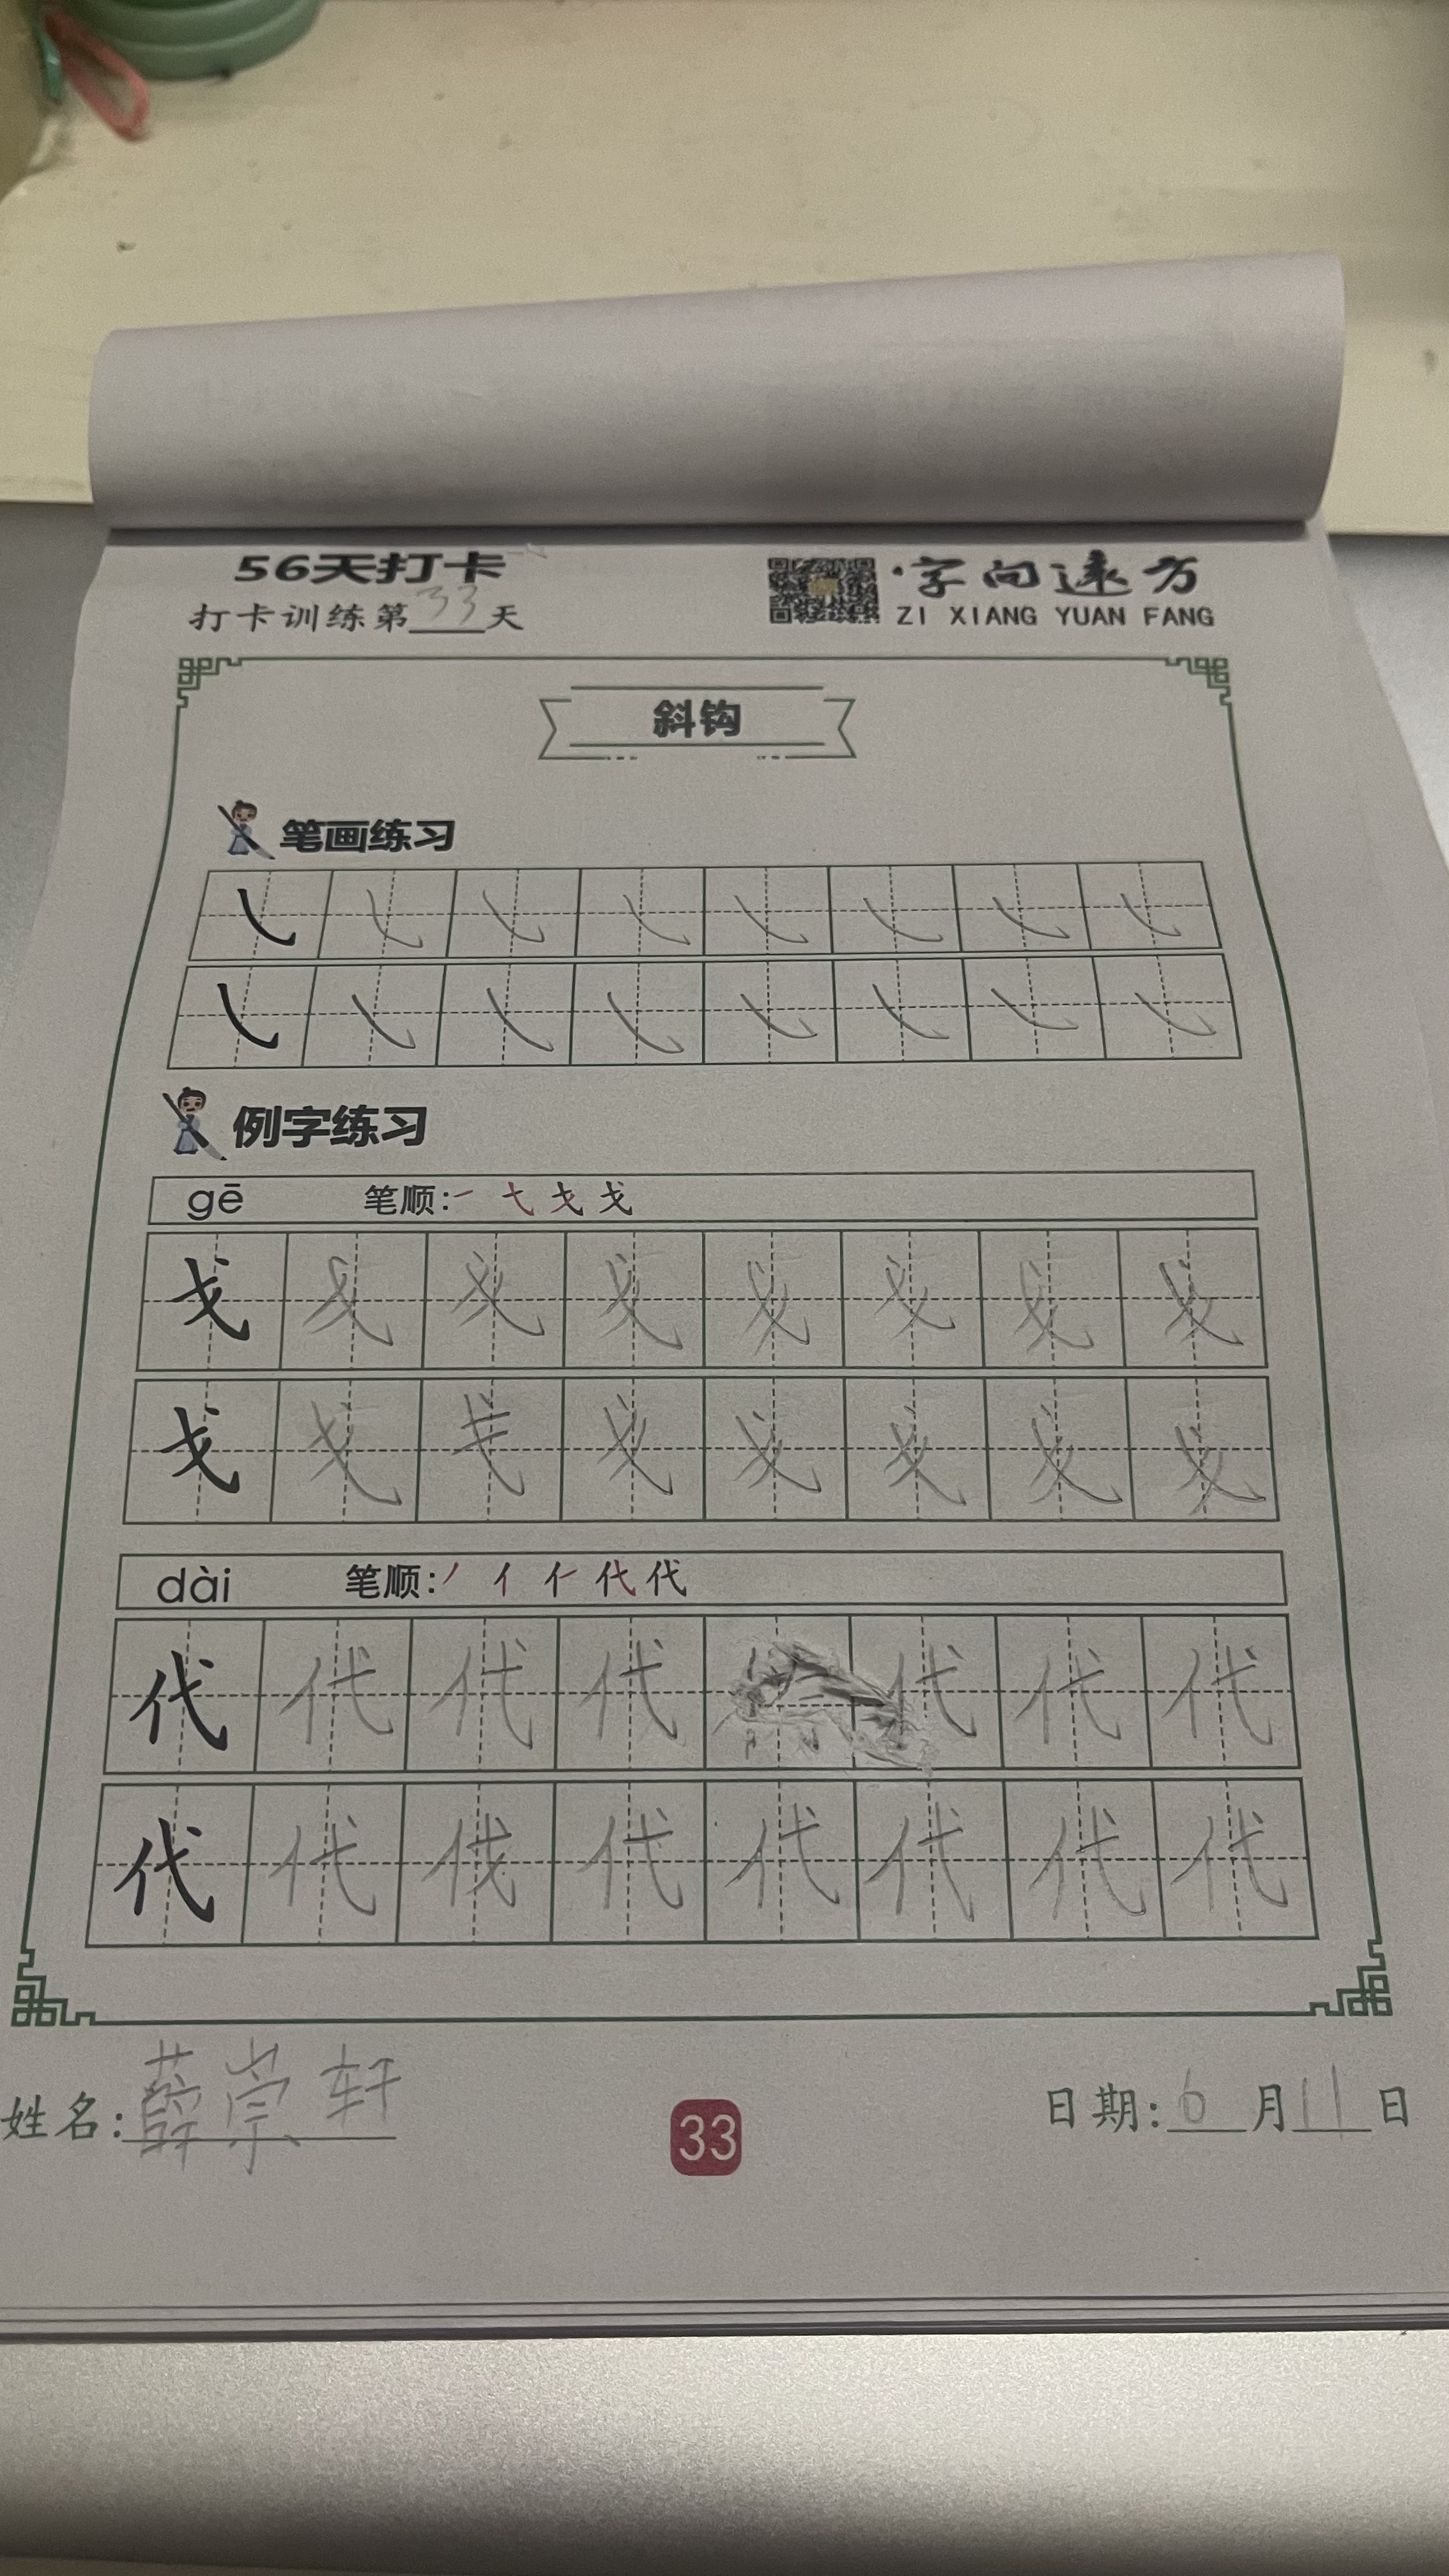 56天打卡
打卡训练第33天
字向远方
ZI XIANG YUAN FANG
斜钩
笔画练习
㇂ ㇂ ㇂ ㇂ ㇂ ㇂ ㇂ ㇂
㇂ ㇂ ㇂ ㇂ ㇂ ㇂ ㇂ ㇂
例字练习
gē 笔顺:一 弋 戈 戈
戈 戈 戈 戈 戈 戈 戈 戈
戈 戈 戈 戈 戈 戈 戈
dài 笔顺:丿 亻 仁 代 代
代 代 代 代 代 代 代
代 代 伐 代 代 代 代 代
姓名:薛崇轩
33
日期:6月11日